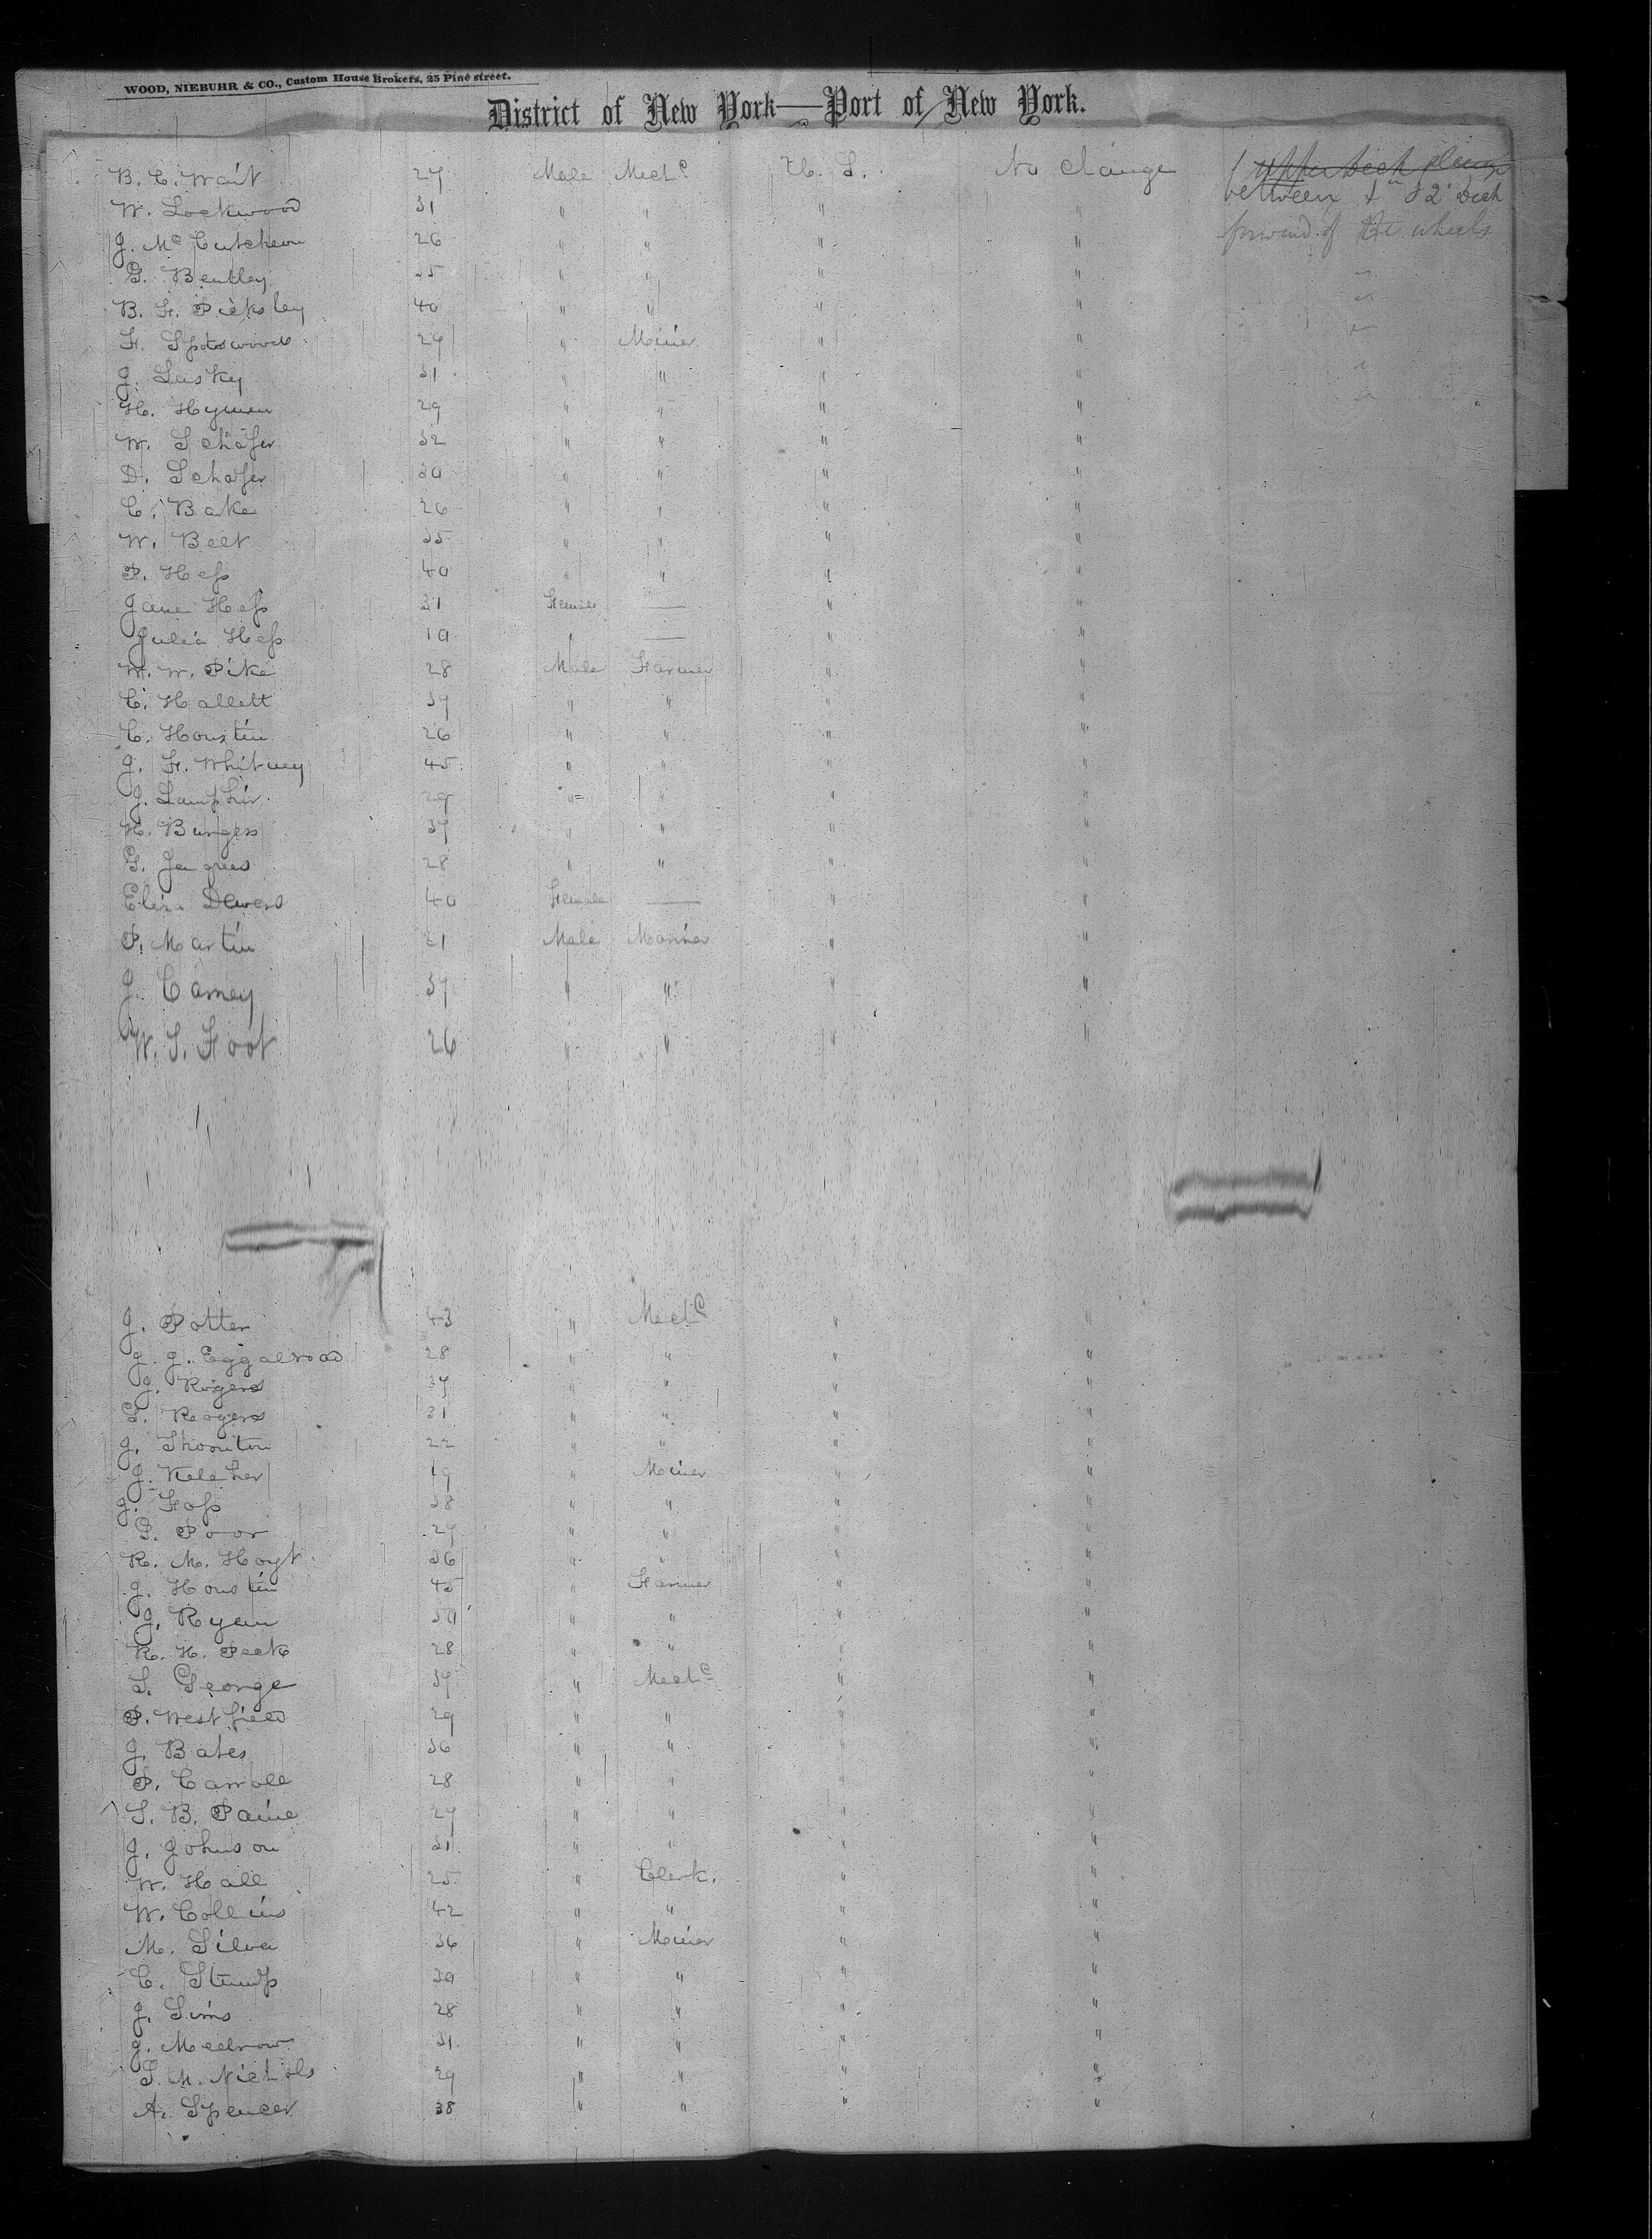 WOOD, NIEBUHR & CO., Custom House Brokers, 25 Pine street.
District of New York—Port of New York.
B. C. Wait 27 Male Mechc U. S. No Change upper Deck
W. Lockwood 31 " " " " between 1st & 2d Deck
J. McCutcheon 26 " " " " forward of the wheels
G. Bentley 35 " " " " "
B. F. Picksley 40 " " " " "
F. Spotswood 27 " Miner " " "
J. Lusky 31 " " " " "
H. Hyman 29 " " " " "
W. Schafer 32 " " " "
D. Schafer 30 " " " "
C. Baker 26 " " " "
W. Belt 35 " " " "
P. Hess 40 " " " "
Jane Hess 31 Female — " "
Julia Hess 10 " — " "
W. W. Pike 28 Male Farmer " "
C. Hallett 37 " " " "
C. Houstin 26 " " " "
J. F. Whitney 45 " " " "
J. Lamphir 29 " " " "
H. Burgess 37 " " " "
G. 28 " " " "
Eliza Dewers 40 Female — " "
P. Martin 21 Male Mariner " "
J. Carney 37 " " " "
W. S. Foot 26 " " " "
J. Potter 43 " Mechc " "
J. J. Eggalroad 28 " " " "
J. Rogers 37 " " " "
G. Rogers 31 " " " "
J. Thornton 22 " " " "
J. Keleher 19 " Miner " "
J. Foss 38 " " " "
G. Poor 27 " " " "
R. M. Hoyt 36 " " " "
J. Houstin 45 " Farmer " "
J. Ryan 50 " " " "
R. H. Peck 28 " " " "
S. George 37 " Mechc " "
P. Westfield 29 " " " "
J. Bates 36 " " " "
P. Carroll 28 " " " "
S. B. Paine 27 " " " "
J. Johnson 31 " " " "
W. Hall 25 " Clerk. " "
W. Collins 42 " " " "
M. Silva 36 " Miner " "
C. Stump 30 " " " "
J. Sims 28 " " " "
J. 31 " " " "
S. M. Nichols 29 " " " "
A. Spencer 38 " " " "